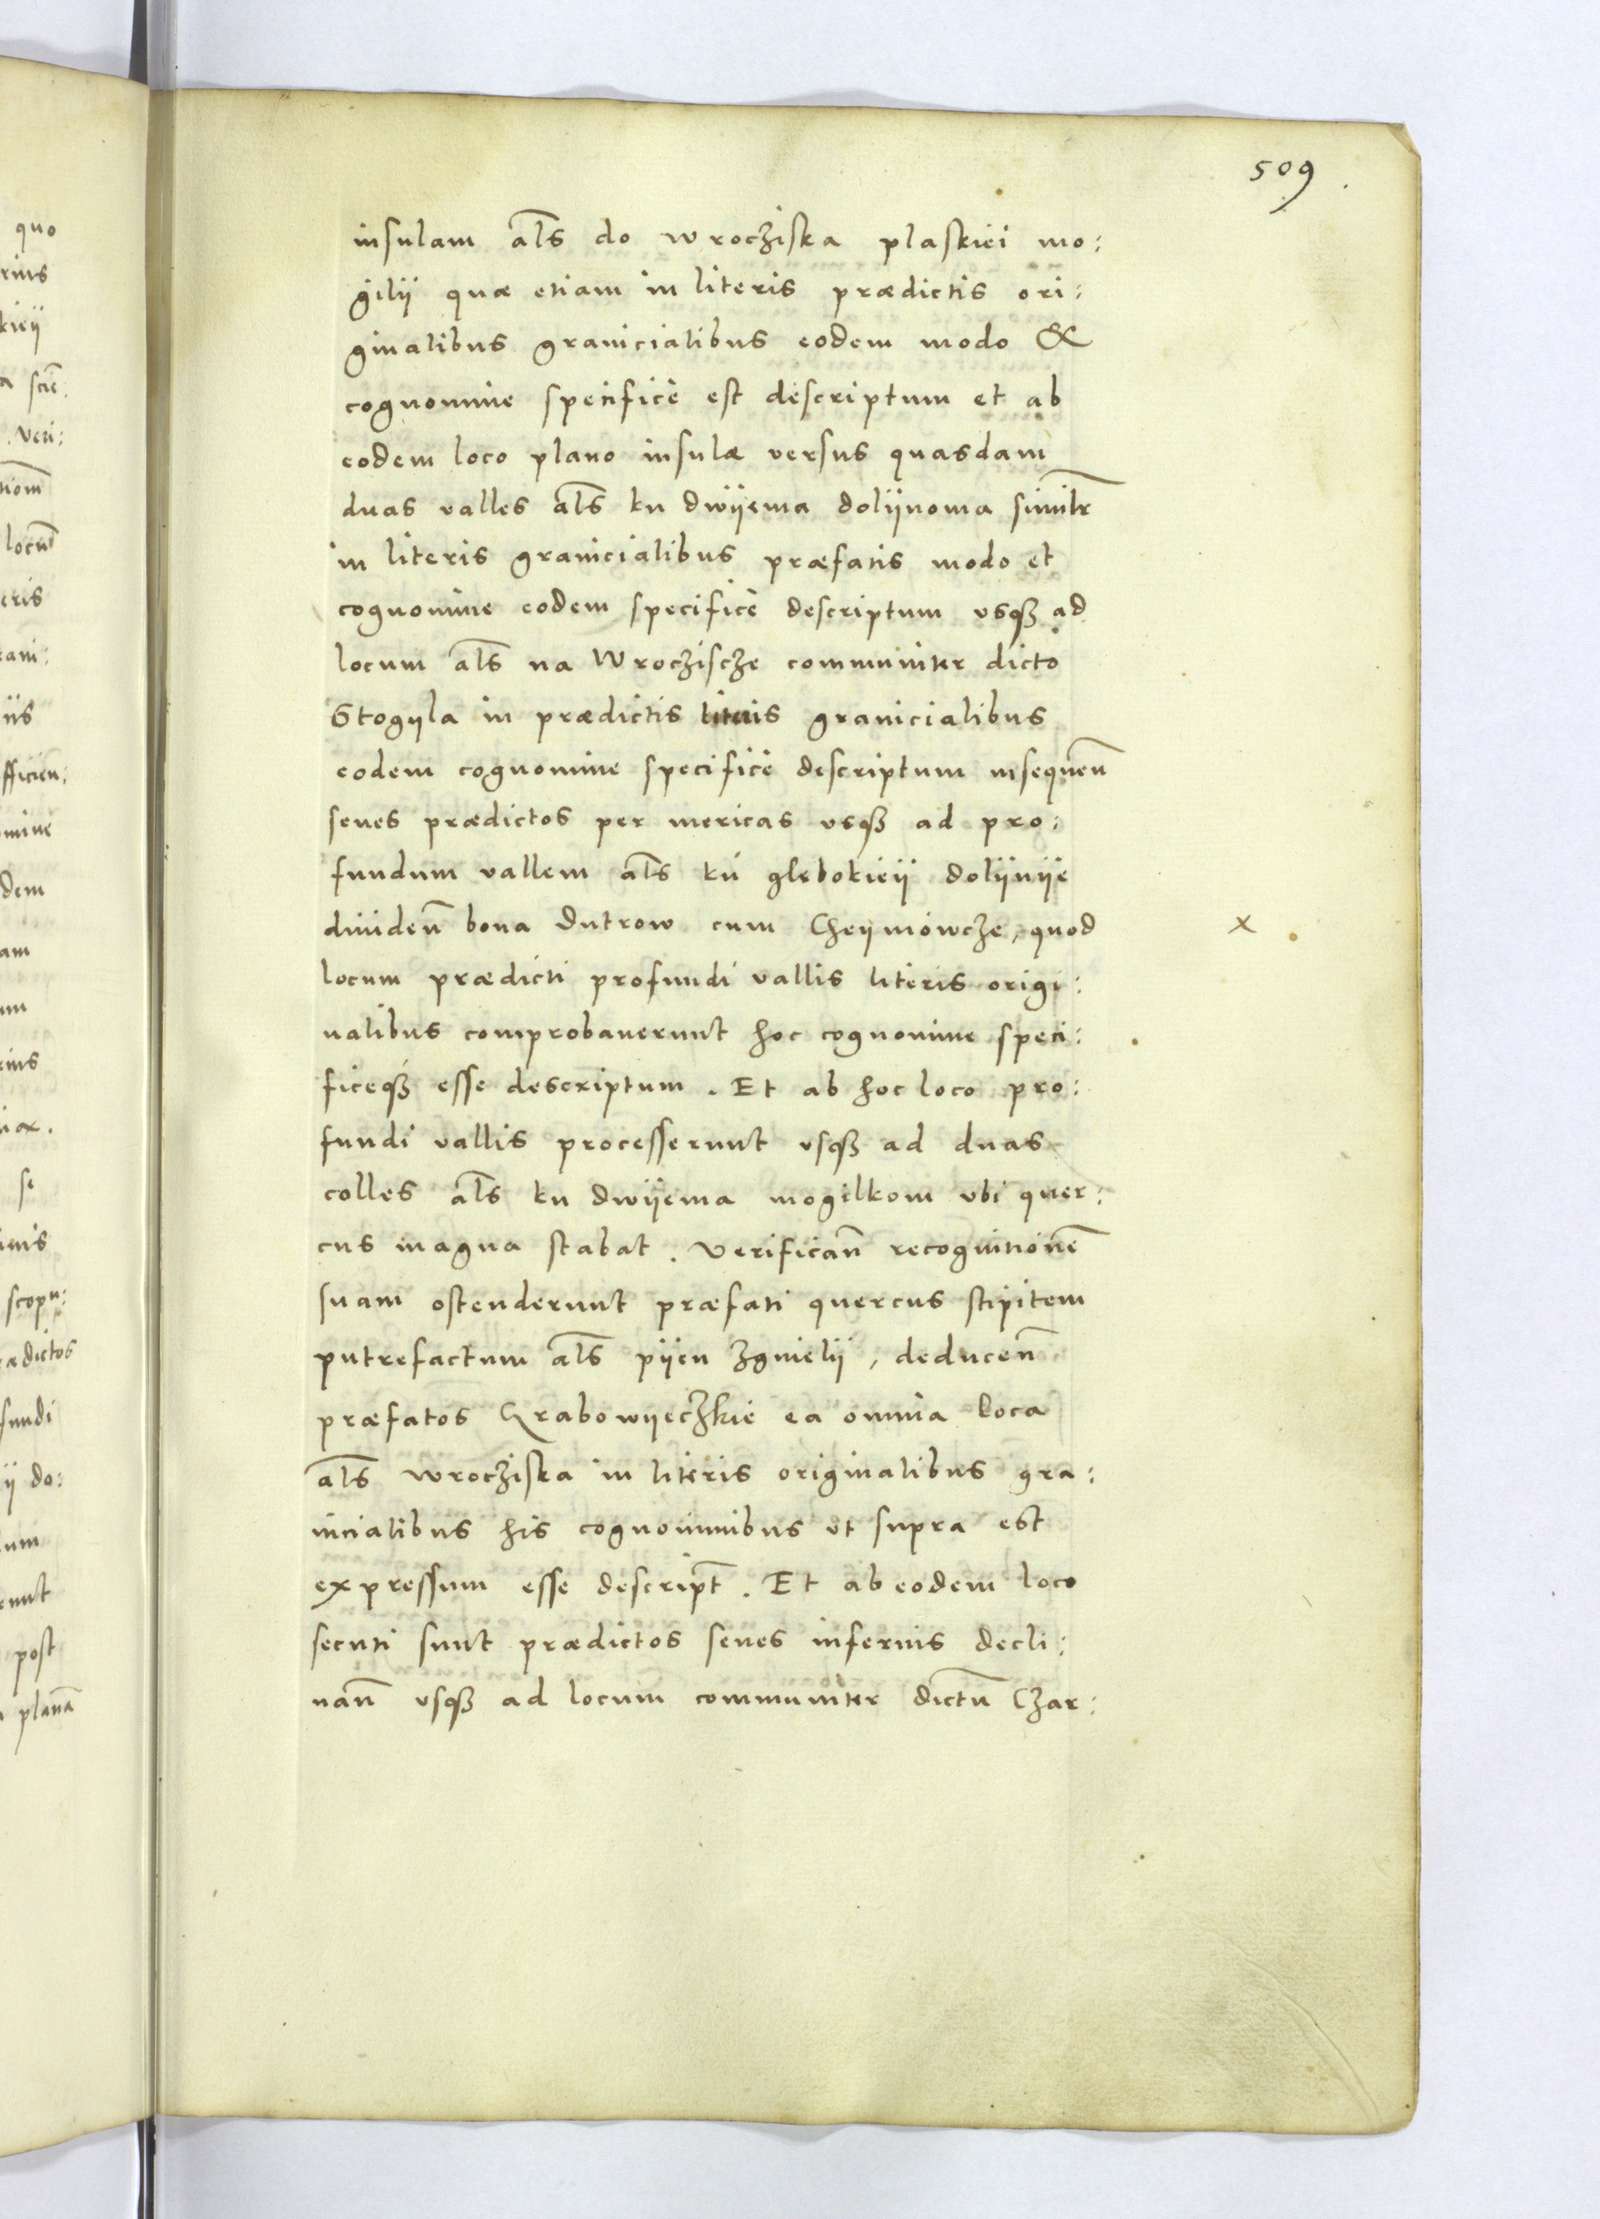 509
insulam als̄ do wrocziska plaskiei mo:
gilij quæ etiam in literis prædictis ori:
ginalibus granicialibus eodem modo &
cognomine specifice est descriptum et ab
eodem loco plano insulæ versus quasdam
duas valles als̄ ku dwijema dolijnoma similr̄
in literis granicialibus præfatis modo et
cognomine eodem specifice descriptum vsqꝫ ad
locum als̄ na Wrocziscze communiter dicto
Stogyla in prædictis literis granicialibus
eodem cognomine specifice descriptum insequen̄
senes prædictos per mericas vsqꝫ ad pro:
fundum vallem als̄ kú glebokieij dolijnije
diuiden̄ bona Dutrow cum Cheijmowcze, quod
locum prædicti profundi vallis literis origi:
nalibus comprobauerunt hoc cognomine speci:
ficeqꝫ esse descriptum. Et ab hoc loco pro:
fundi vallis processerunt vsqꝫ ad duas
colles als̄ ku dwijema mogilkom vbi quer:
cus magna stabat. Verifican̄ recognitionē
suam ostenderunt præfati quercus stipitem
putrefactum als̄ pijen zgnielij, deducen̄
præfatos Grabowijeczkie ea omnia loca
als̄ wrocziska in literis originalibus gra:
nicialibus his cognominibus vt supra est
expressum esse descript̄. Et ab eodem loco
secuti sunt prædictos senes inferius decli:
nan̄ vsqꝫ ad locum communiter dictū Czar:
x
quo
rius
kieij
veri:
locū
eris
rani:
iis
fficien:
omine
dem
am
um
rius
se
scopu:
ædictos
fundi
ij do:
tum
runt
post
planā